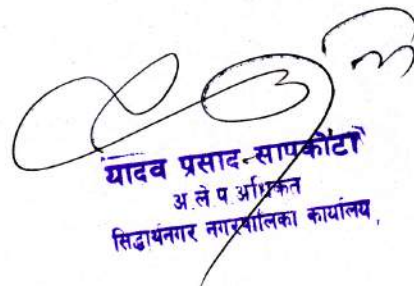 यादव प्रसाद सापकोटा
अ.ले.प.अधिकृत
सिद्धार्थनगर नगरपालिका कार्यालय,